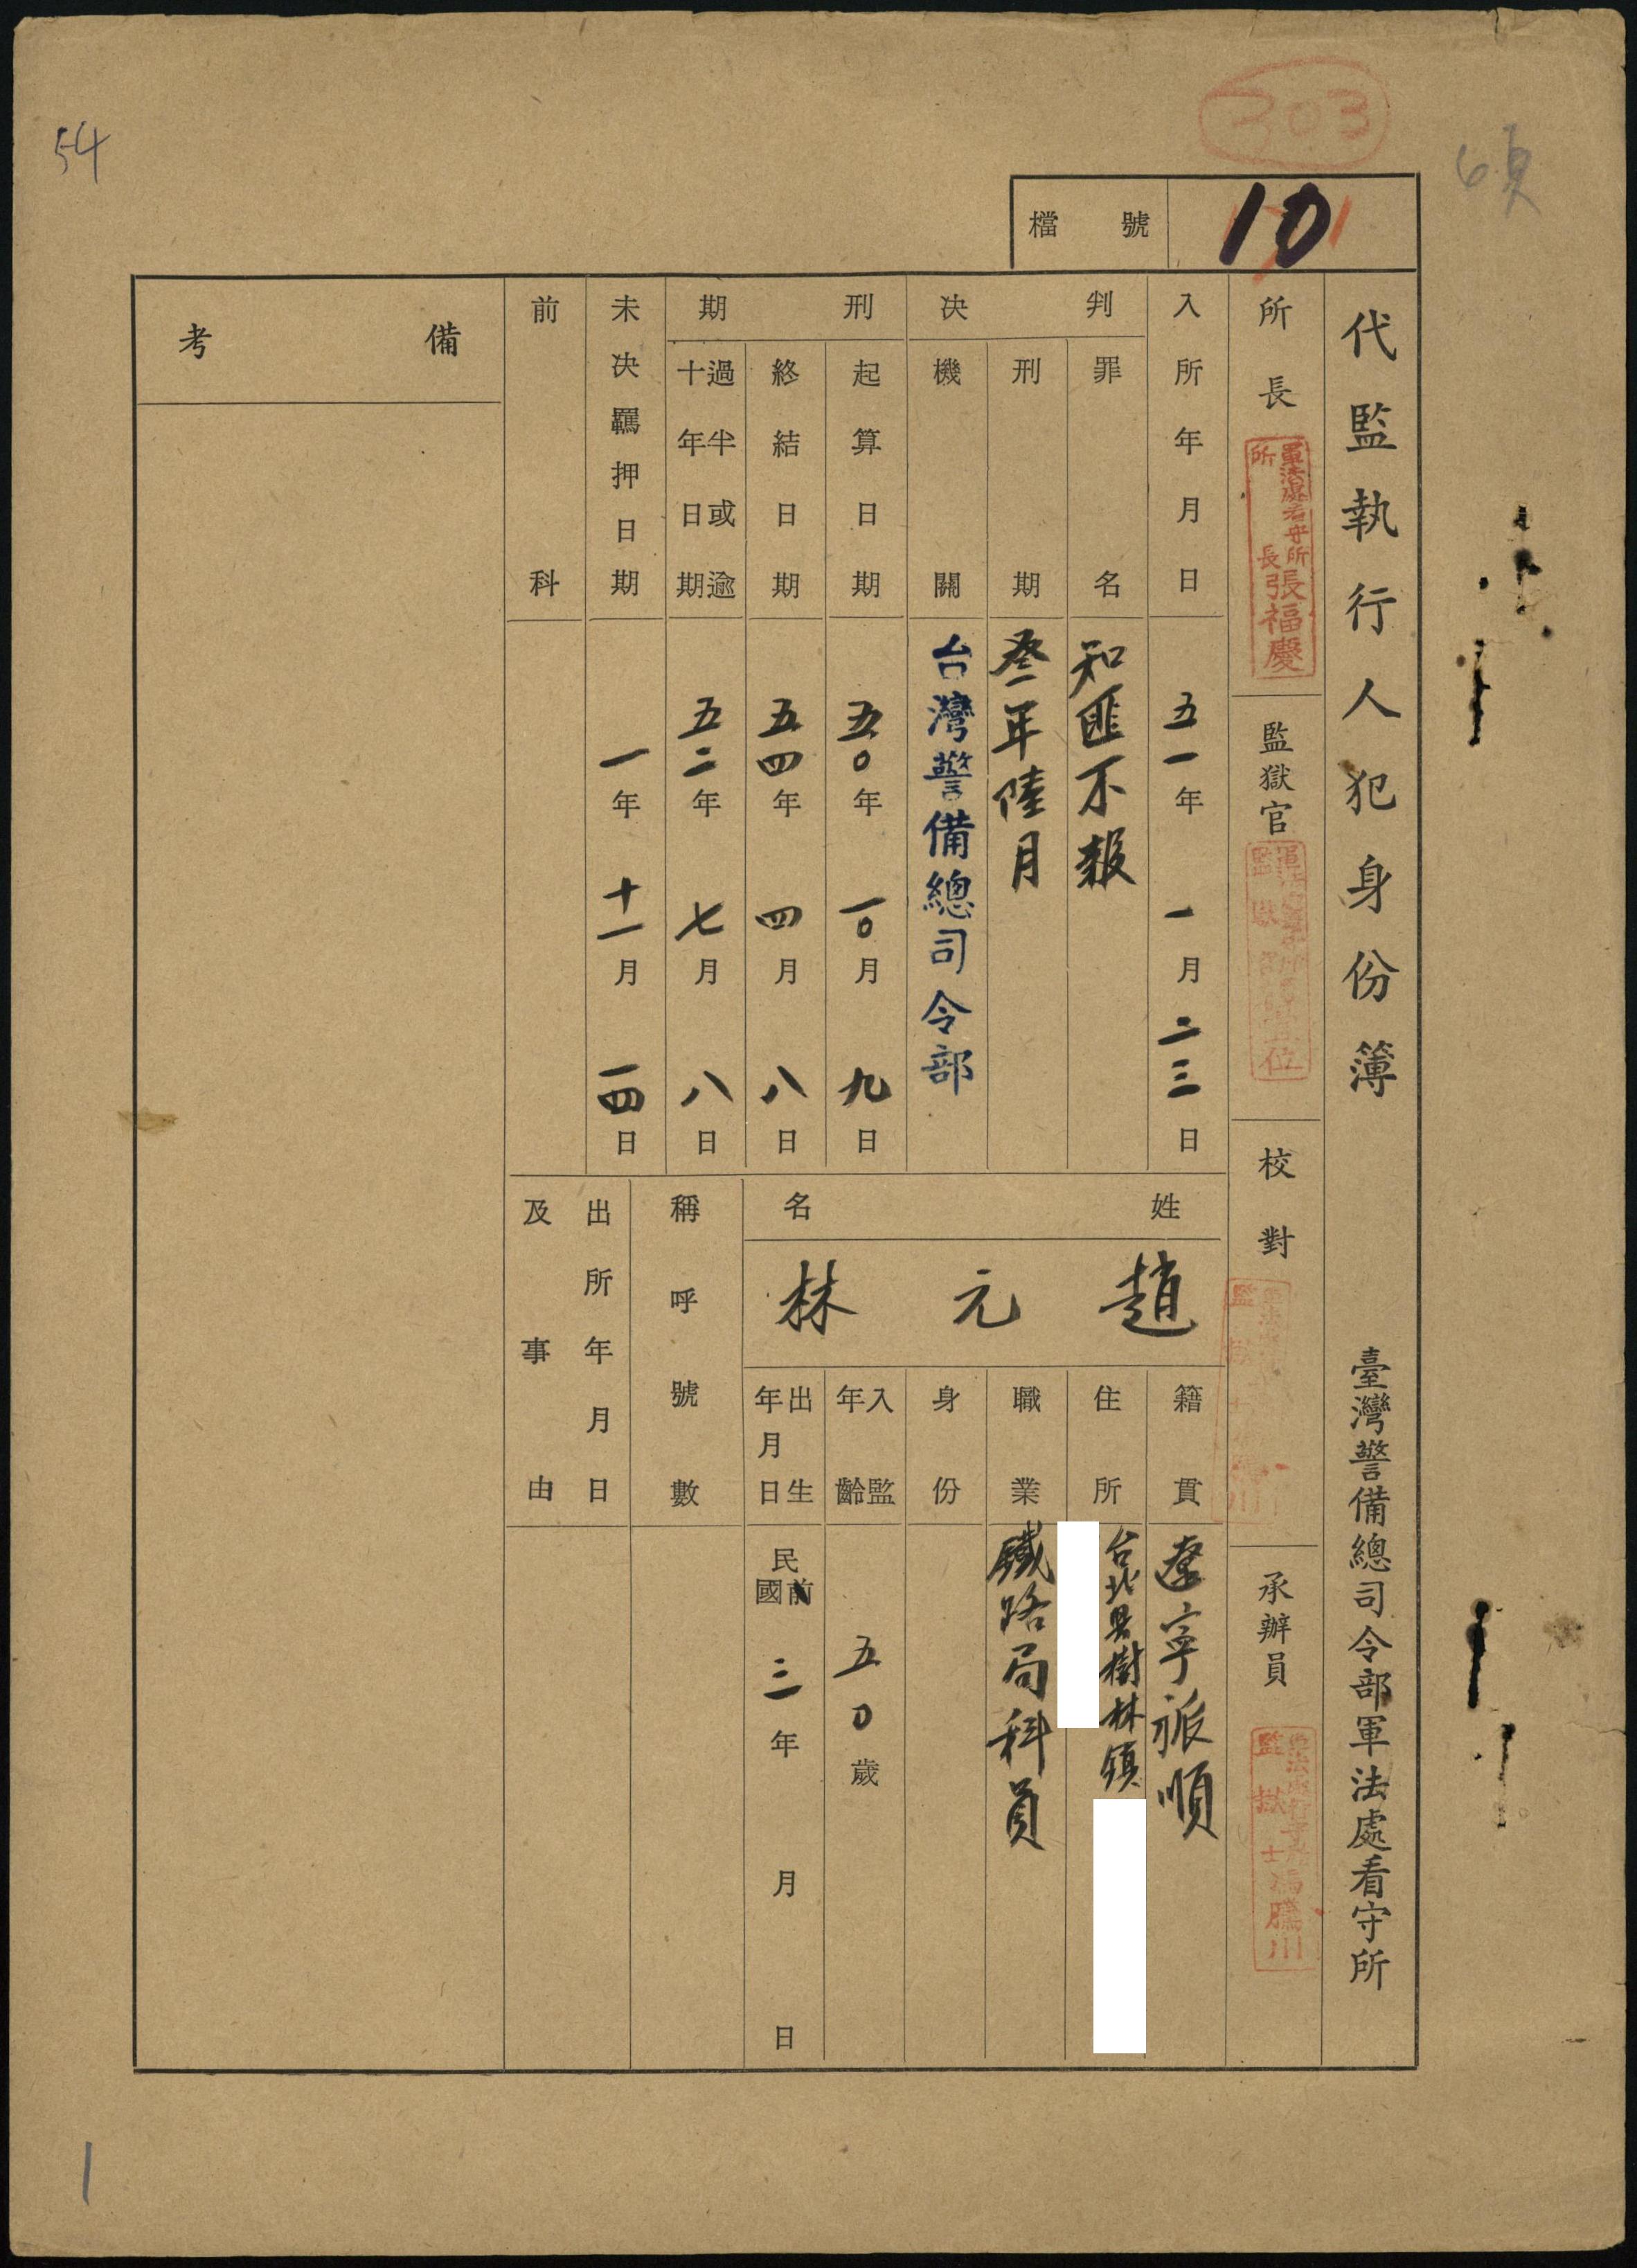 303
54
6頁
檔號
10
代監執行人犯身份簿
臺灣警備總司令部軍法處看守所
所長
軍法處看守所
所長張福慶
監獄官
校對
承辦員
監獄士馮騰川
入所年月日
五一年一月二三日
判決
罪名
知匪不報
刑期
叁年陸月
機關
台灣警備總司令部
刑期
起算日期
五〇年一〇月九日
終結日期
五四年四月八日
過半或逾
十年日期
五二年七月八日
未決羈押日期
一年十一月一四日
前科
姓名
趙元林
籍貫
遼寧旅順
住所
台北县樹林鎮
職業
鐵路局科員
身份
入監年齡
五〇歲
出生年月日
民國前三年月日
稱呼號數
出所年月日
及事由
備考
1